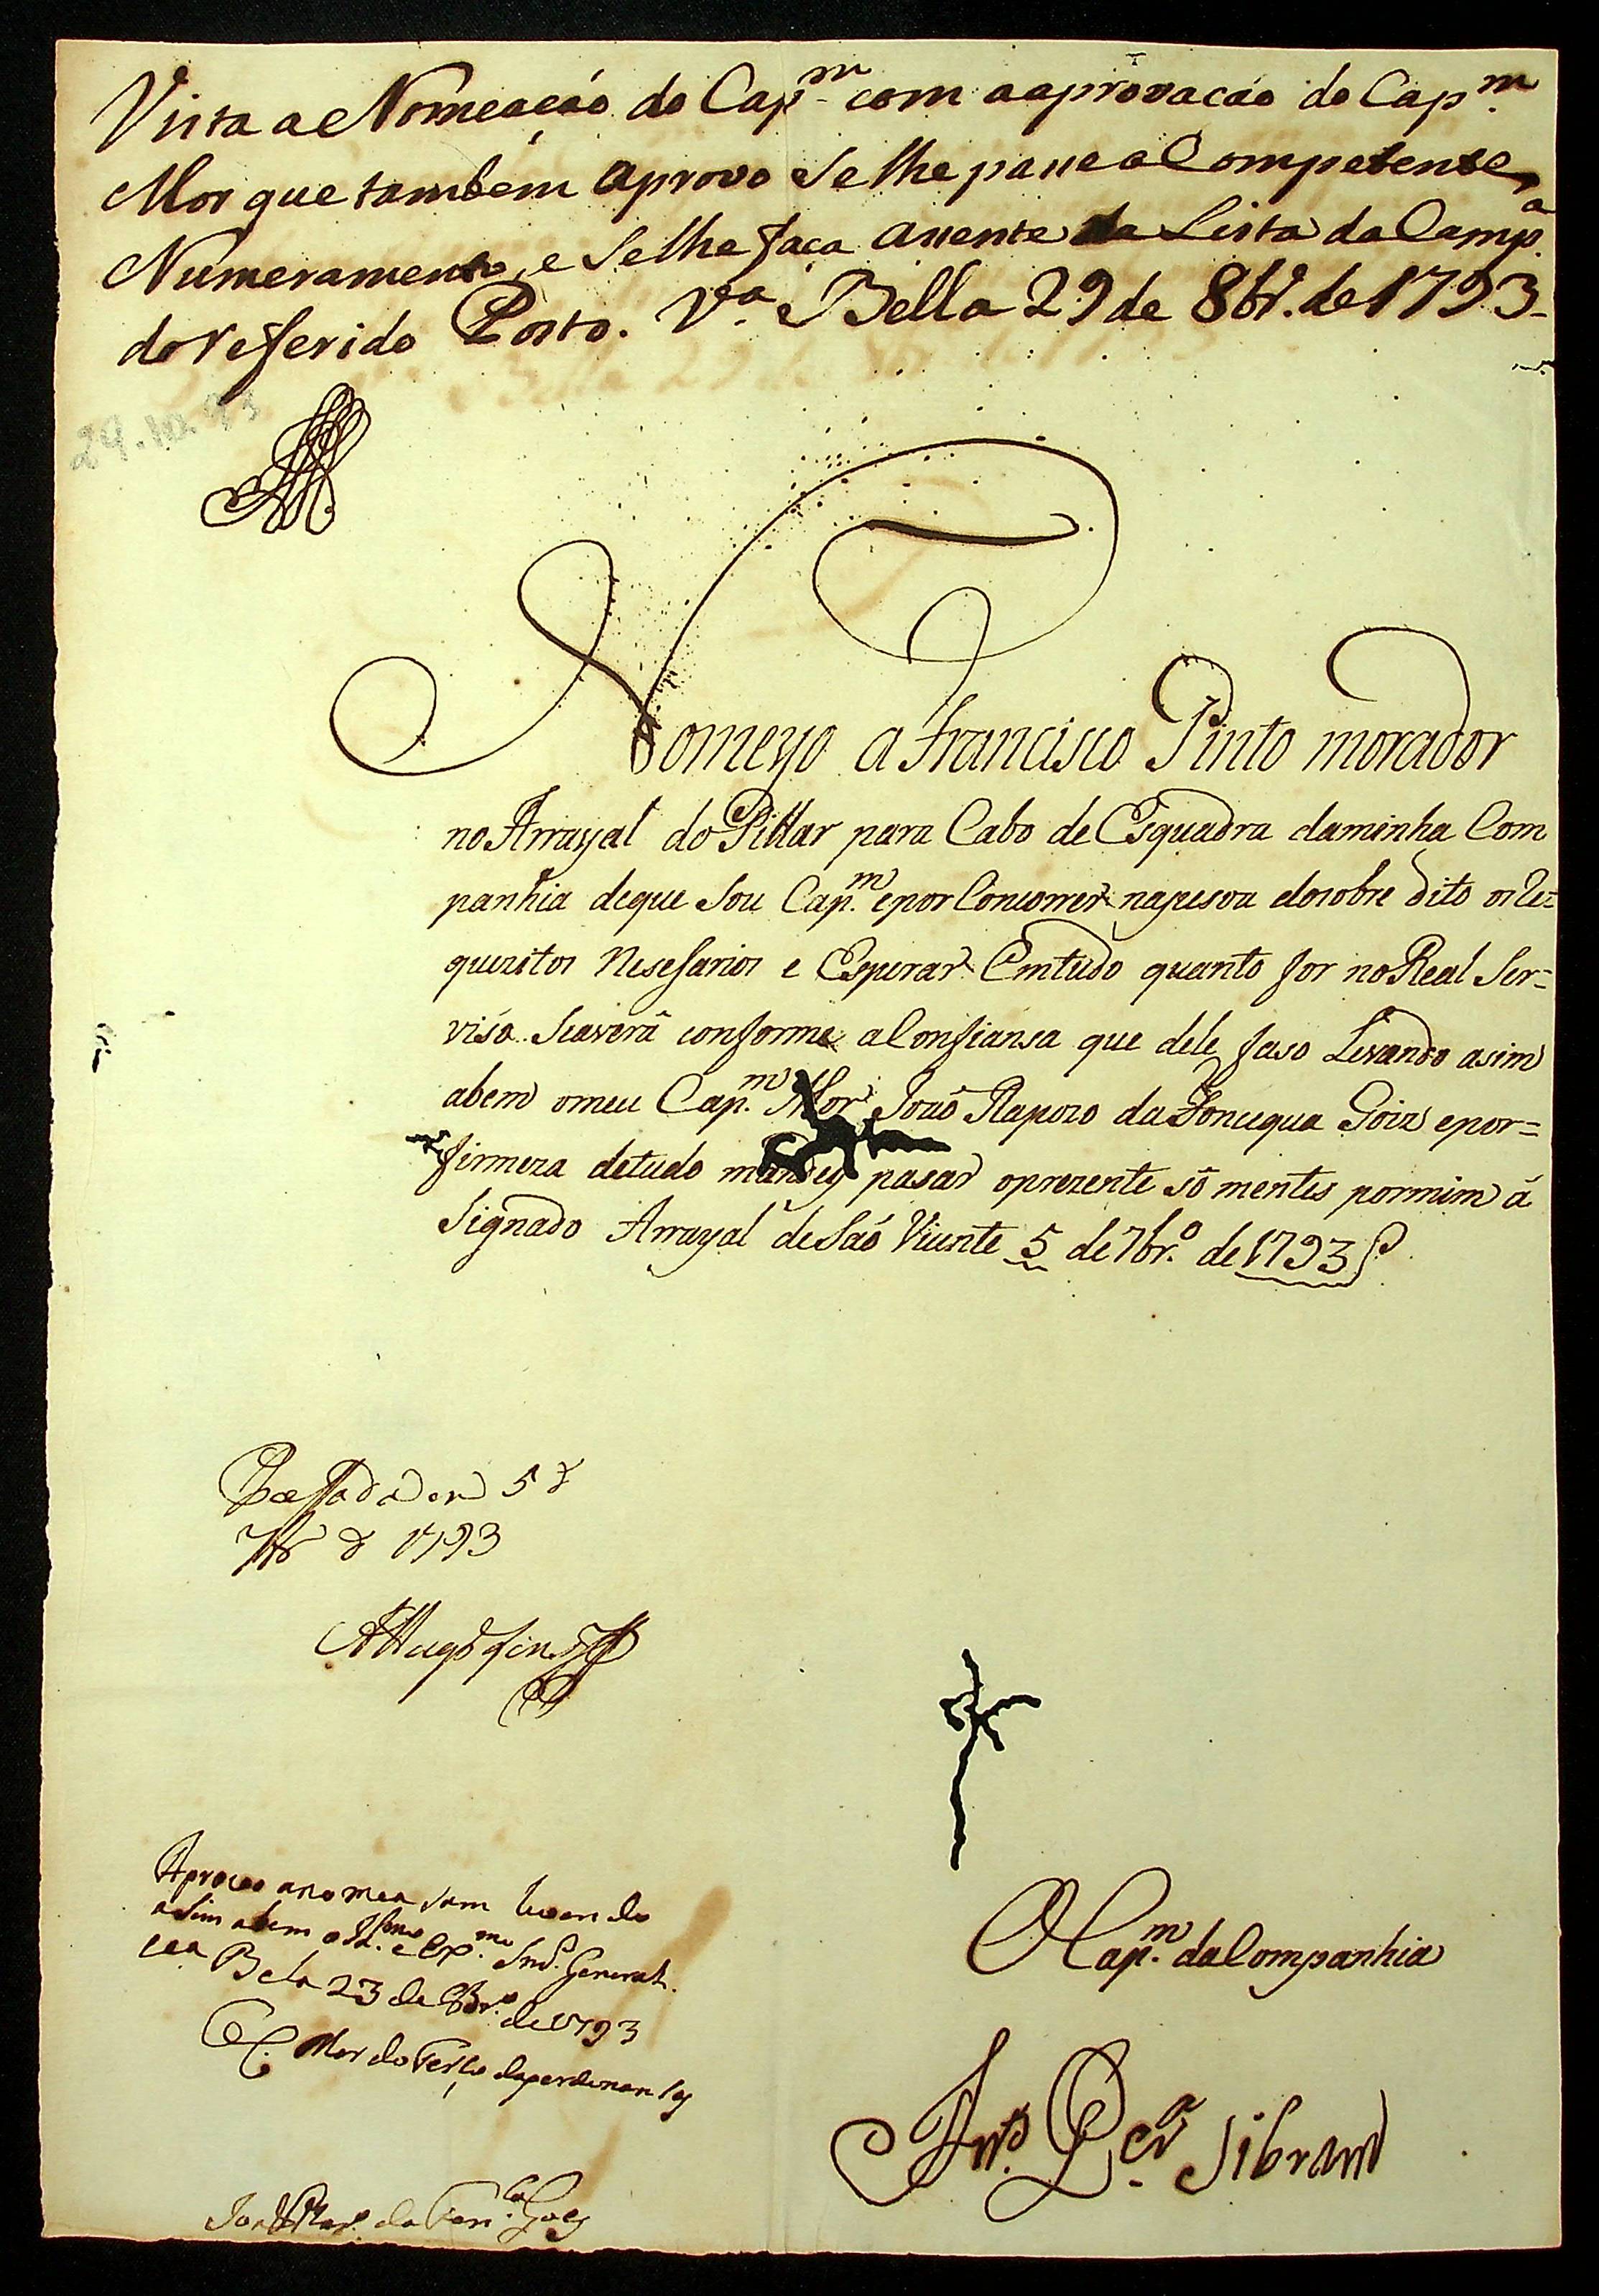 Vista a Nomeação do Cap.m com a aprovacáo do Cap.m
Mor que também aprovo se lhe passe a Competente
Numeramento, e se lhe faça assento da Lista da Comp.a
do referido Posto. V.a Bella 29 de 8br.o de 1793
29.10.93
Nomeyo a Francisco Pinto morador
no Arrayal do Pillar para Cabo de Esquadra daminha Com
panhia deque Sou Cap.m epor Concorrer napesoa dosobre dito os Re=
quezitos Nesesarios e Esperar Emtudo quanto for no Real Ser=
viso. Seaverâ conforme aConfiansa que dele faso Levando asim
abem omeu Cap.m Mor Joaõ Rapozo da Fonsequa Goiz epor=
firmeza detudo mandey pasar oprezente sô mentes pormim á
Signado Arrayal de Saó Vicente 5 de 7br.o de 1793
5 de
7br de 1793
Aprovo anomeasam levando
asim abem o Il.mo e Ex.mo Snr. General.
Bela 23 de 8br.o de 1793
O C. Mor do Terso daordenansas
O Cap.m daCompanhia
Ant.o Per.a